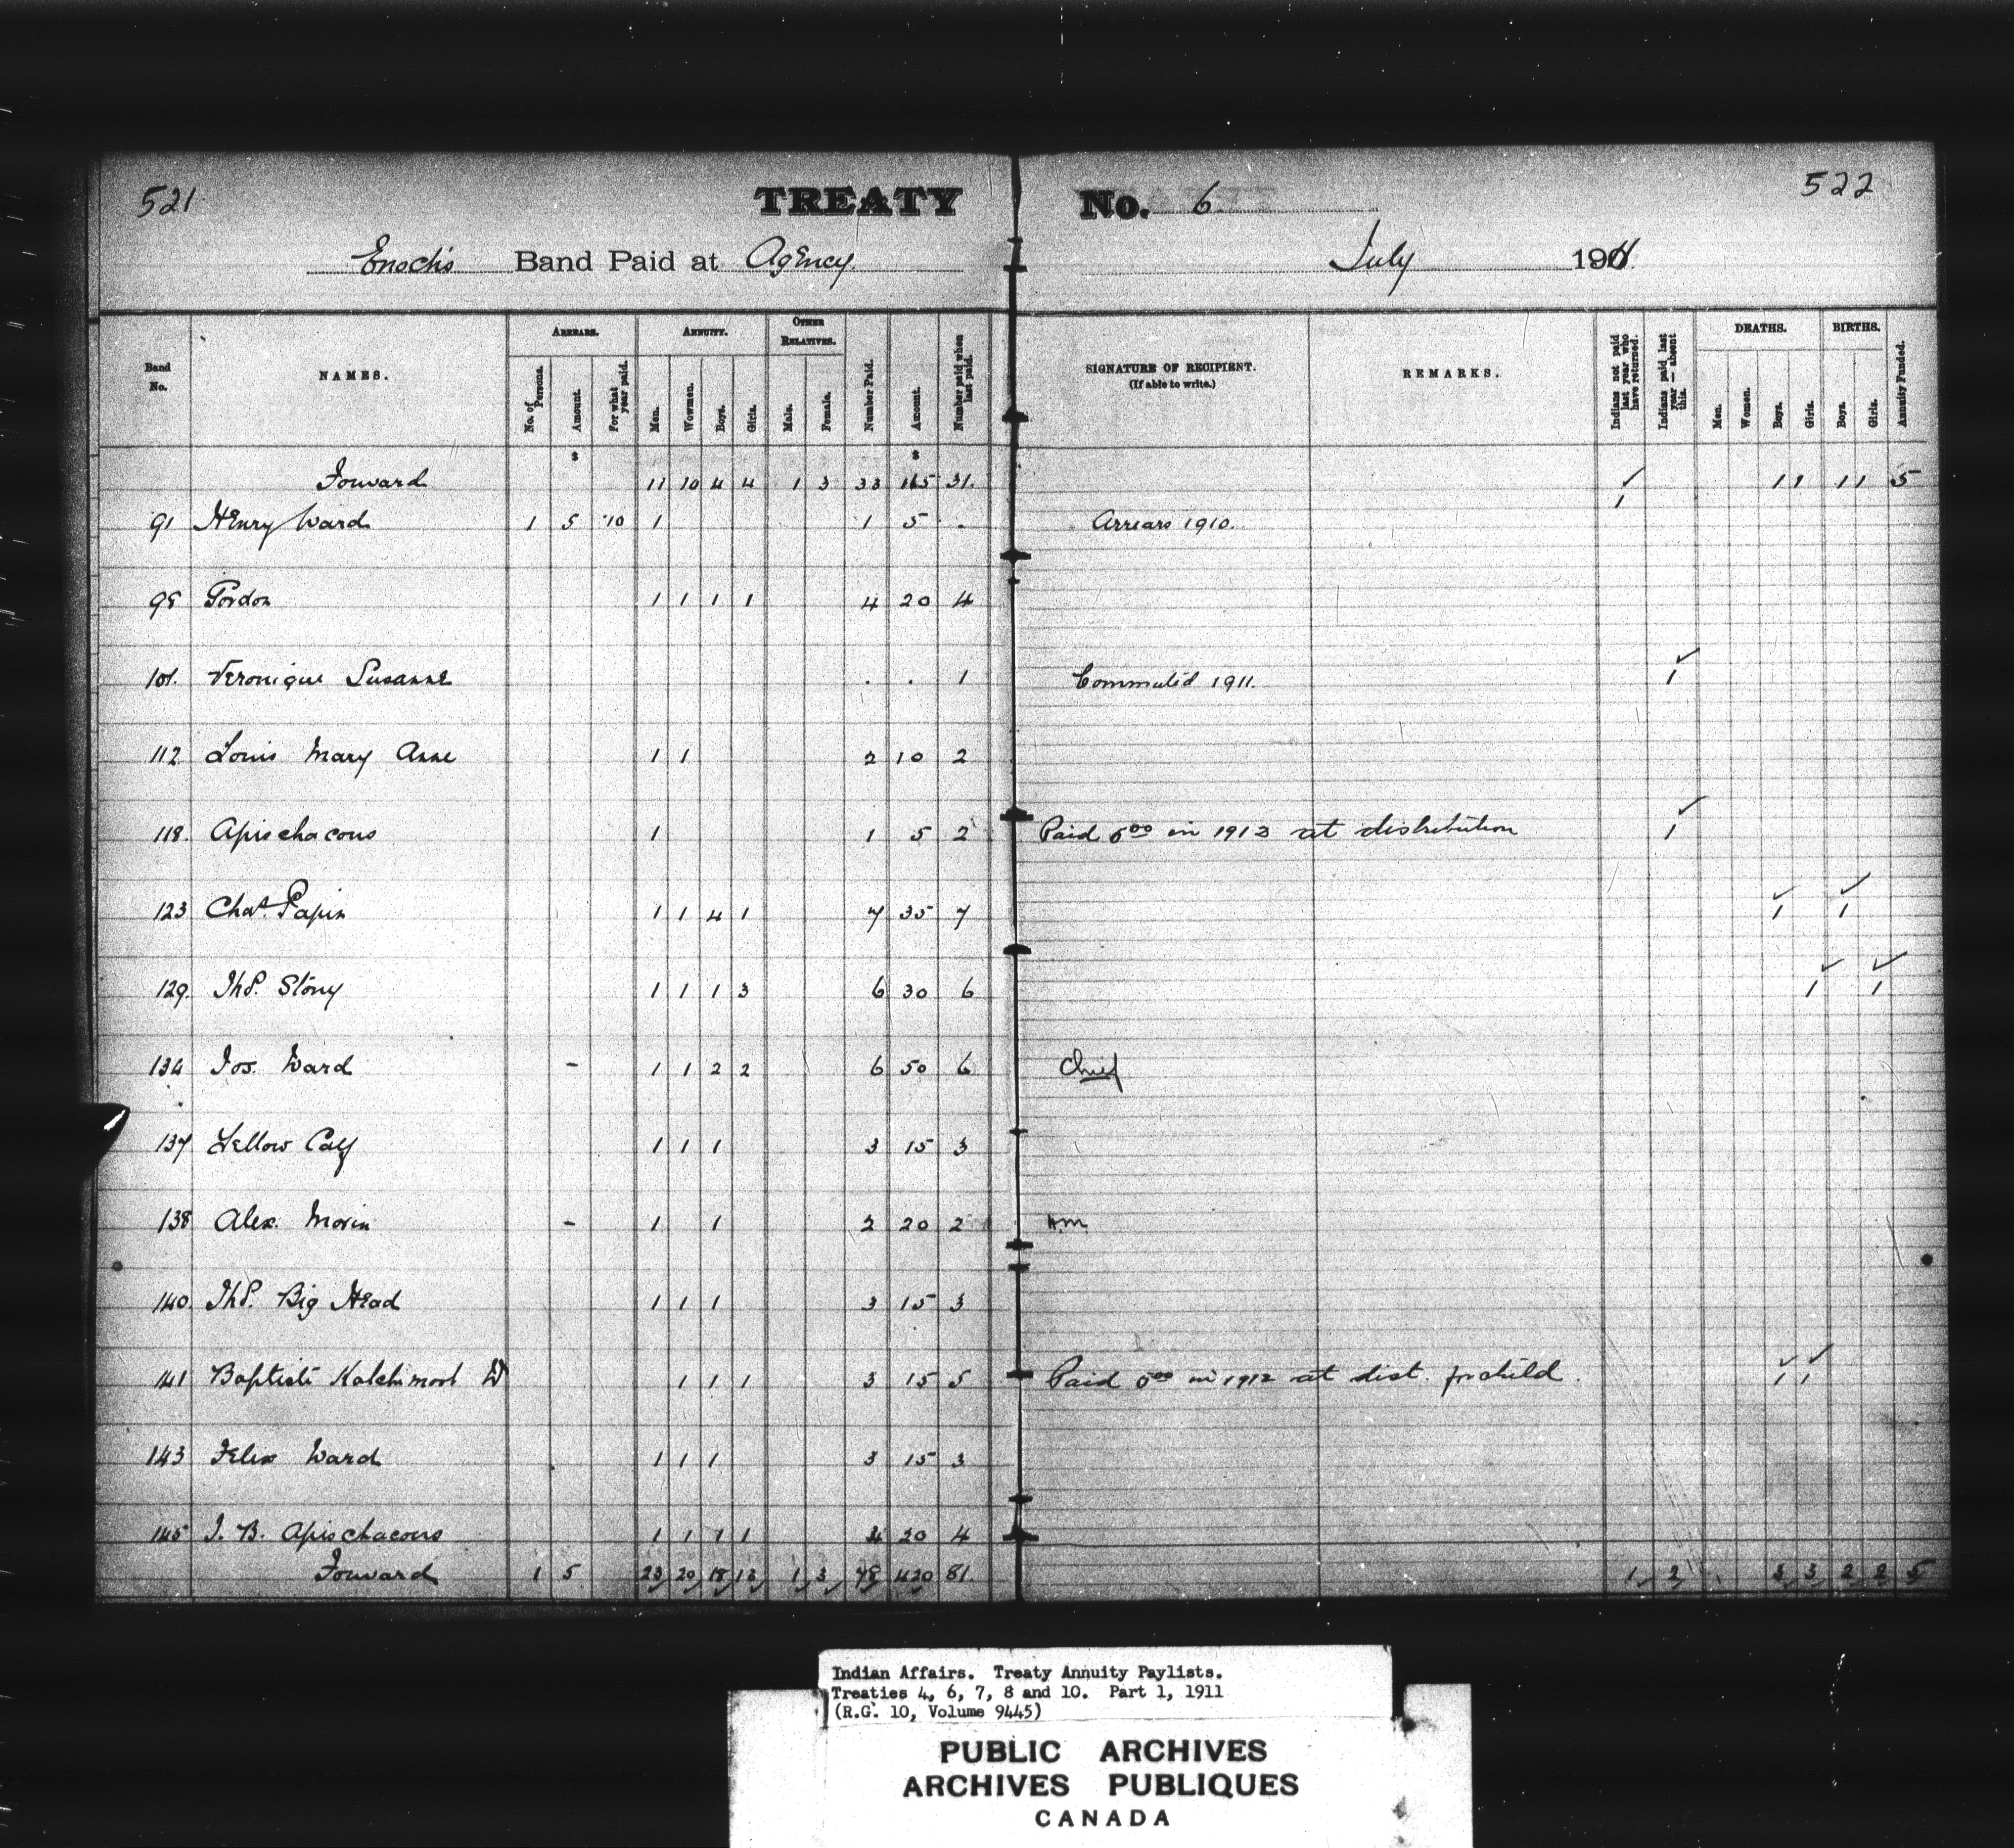 521 TREATY No. 6. 522
Enoch's Band Paid at Agency. July 1911.
Band No. NAMES. ARREARS. ANNUITY. OTHER RELATIVES. Number Paid. Amount. Number paid when last paid. SIGNATURE OF RECIPIENT. (If able to write.) REMARKS. Indians not paid last year who have returned. Indians paid last year — absent this. DEATHS. BIRTHS. Annuity Funded.
No. of Persons. Amount. For what year paid. Men. Wowmen. Boys. Girls. Male. Female. Men. Women. Boys. Girls. Boys. Girls.
$ $
Forward 11 10 4 4 1 3 33 165 31. ✓ 1 1 1 1 5
91 Henry Ward 1 5 '10 1 1 5 . Arrears 1910. 1
98 Gordon 1 1 1 1 4 20 4
101. Veronique Susanne . . 1 Commuted 1911. ✓ 1
112 Louis Mary Anne 1 1 2 10 2
118. Apischacous 1 1 5 2 Paid 5 00 in 1912 at distribution ✓ 1
123 Chas. Papin 1 1 4 1 7 35 7 ✓ 1 ✓ 1
129. Thos. Stony 1 1 1 3 6 30 6 ✓ 1 ✓ 1
134 Jos. Ward - 1 1 2 2 6 50 6 Chief
137 Yellow Calf 1 1 1 3 15 3
138 Alex. Morin - 1 1 2 20 2 H.m.
140. Thos. Big Head 1 1 1 3 15 3
141 Baptiste W 1 1 1 3 15 5 Paid 5 00 in 1912 at dist. for child. ✓ 1 ✓ 1
143 Felix Ward 1 1 1 3 15 3
145 J. B. Apischacous 1 1 1 1 4 20 4
Forward 1 5 23 20 18 13 1 3 78 420 81 1 2 3 3 2 2 5
Indian Affairs. Treaty Annuity Paylists.
Treaties 4, 6, 7, 8 and 10. Part 1, 1911
(R.G. 10, Volume 9445)
PUBLIC ARCHIVES
ARCHIVES PUBLIQUES
CANADA